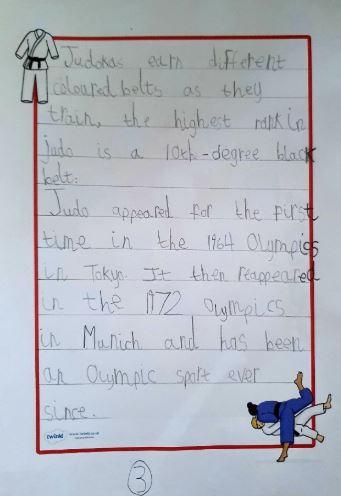 Judokas earn different
coloured belts as they
train, the highest rank in
judo is a 10th-degree black
belt.
Judo appeared for the first
time in the 1964 Olympics
in Tokyo. It then reappeared
in the 1972 Olympics
in Munich and has been
an Olympic sport ever
since.
twinkl www.twinkl.co.uk
3